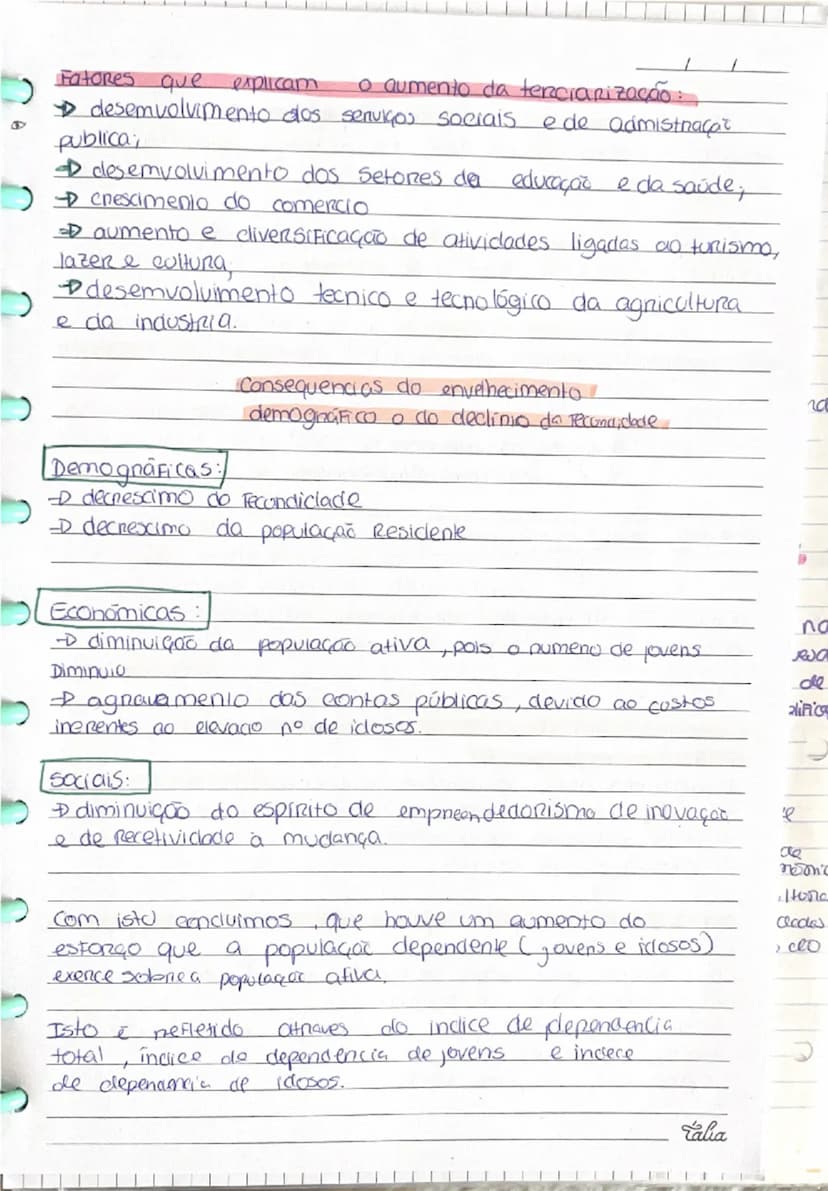 / /
Fatores que explicam o aumento da terciarização:
→ desemvolvimento dos serviços sociais e de admistração
publica;
→ desemvolvimento dos setores da educação e da saúde;
→ crescimento do comercio
→ aumento e diversificação de atividades ligadas ao turismo,
lazer e cultura;
→ desemvolvimento tecnico e tecnológico da agricultura
e da industria.
Consequencias do envelhecimento
demográfico o do declínio da fecundidade
Demográficas:
→ decrescimo do fecondidade
→ decrescimo da população Residente
Económicas:
→ diminuição da população ativa, pois o numero de jovens
Diminuio
→ agravamento das contas públicas, devido ao custos
inerentes ao elevado nº de idosos.
Sociais:
→ diminuição do espírito de empreendedorismo de inovação
e de Recetividade à mudança.
Com isto concluimos, que houve um aumento do
esforço que a população dependente (jovens e idosos)
exerce sobre a população ativa.
Isto é refletido atraves do indice de dependencia
total, índice de dependência de jovens e indece
de de idosos.
Tália